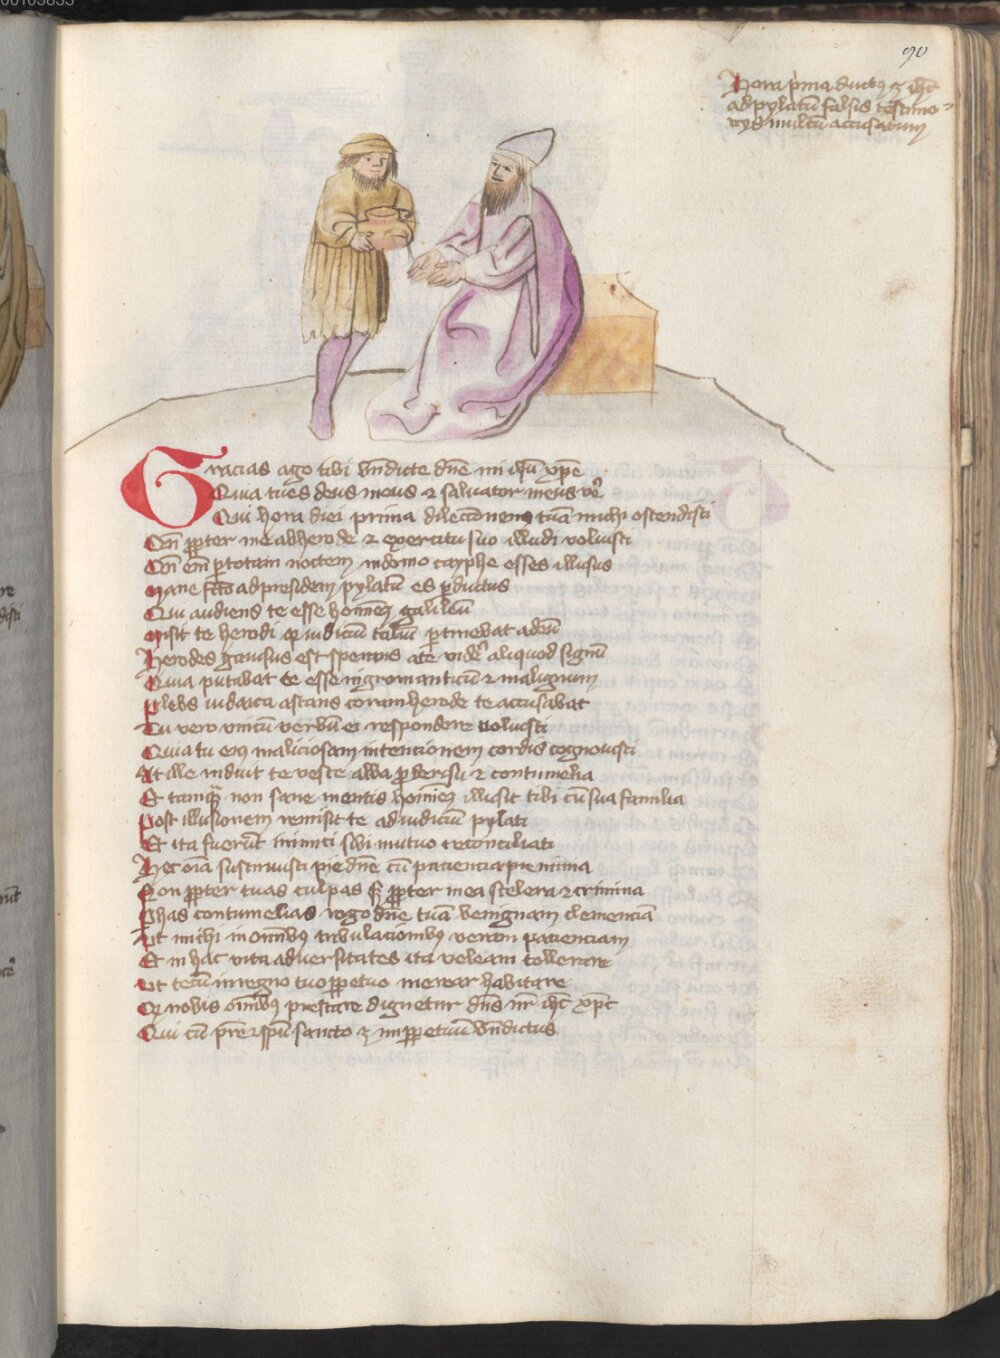 90
Hora p̄ma ductꝰ ē ih̄c
ad pylatū falsis testimo-
nijs multū accusatum
Gracias ago tibi bn̄dicte dn̄e mi ih̄u xp̄e
Quia tu es deus meus ⁊ saluator meus ve᷒
Qui hora diei prima dilecc̄onem tuā michi ostendisti
Cū ꝓpter me ab herode ⁊ exercitu suo illudi voluisti
Cū em̄ ꝑ totam noctem in domo cayphe esses illusus
Mane fc̄o ad presidem pylatū es ꝑductus
Qui audiens te esse hoīem galileū
Misit te herodi qꝛ iudiciū taliū ꝑtinebat ad eū
Herodes gauisus est sperans a te vide᷒ aliquod signū
Quia putabat te esse nigromanticū ⁊ malignum
Plebs iudaica astans coram herode te accusabat
Tu vero vnicū verbū ei respondere noluisti
Quia tu eius maliciosam intentionem cordis cognouisti
At ille induit te veste alba ꝓ derisu ⁊ contumelia
Et tamqȝ non sane mentis hoīem illusit tibi cū sua familia
Post illusionem remisit te ad iudiciū pylati
Et ita fuerūt inimici sibi mutuo reconciliati
Hec oīa sustinuisti pie dn̄e cū paciencia pie nimia
Non ꝓpter tuas culpas sȝ ꝓpter mea scelera ⁊ crimina
Ꝑ has contumelias rogo dn̄e tuā benignam clemenciā
Vt michi in om̄ibꝰ tribulacionibꝰ veram pacienciam
Et in hac vita aduersitates ita veleam tollerare
Vt tecū in regno tuo ꝑpetuo merear habitare
Qꝫ nobis om̄ibꝰ prestare dignetur dn̄s nr̄ ih̄c xp̄c
Qui cū pr̄e ⁊ spū sancto ē in ꝑpetuū bn̄dictus